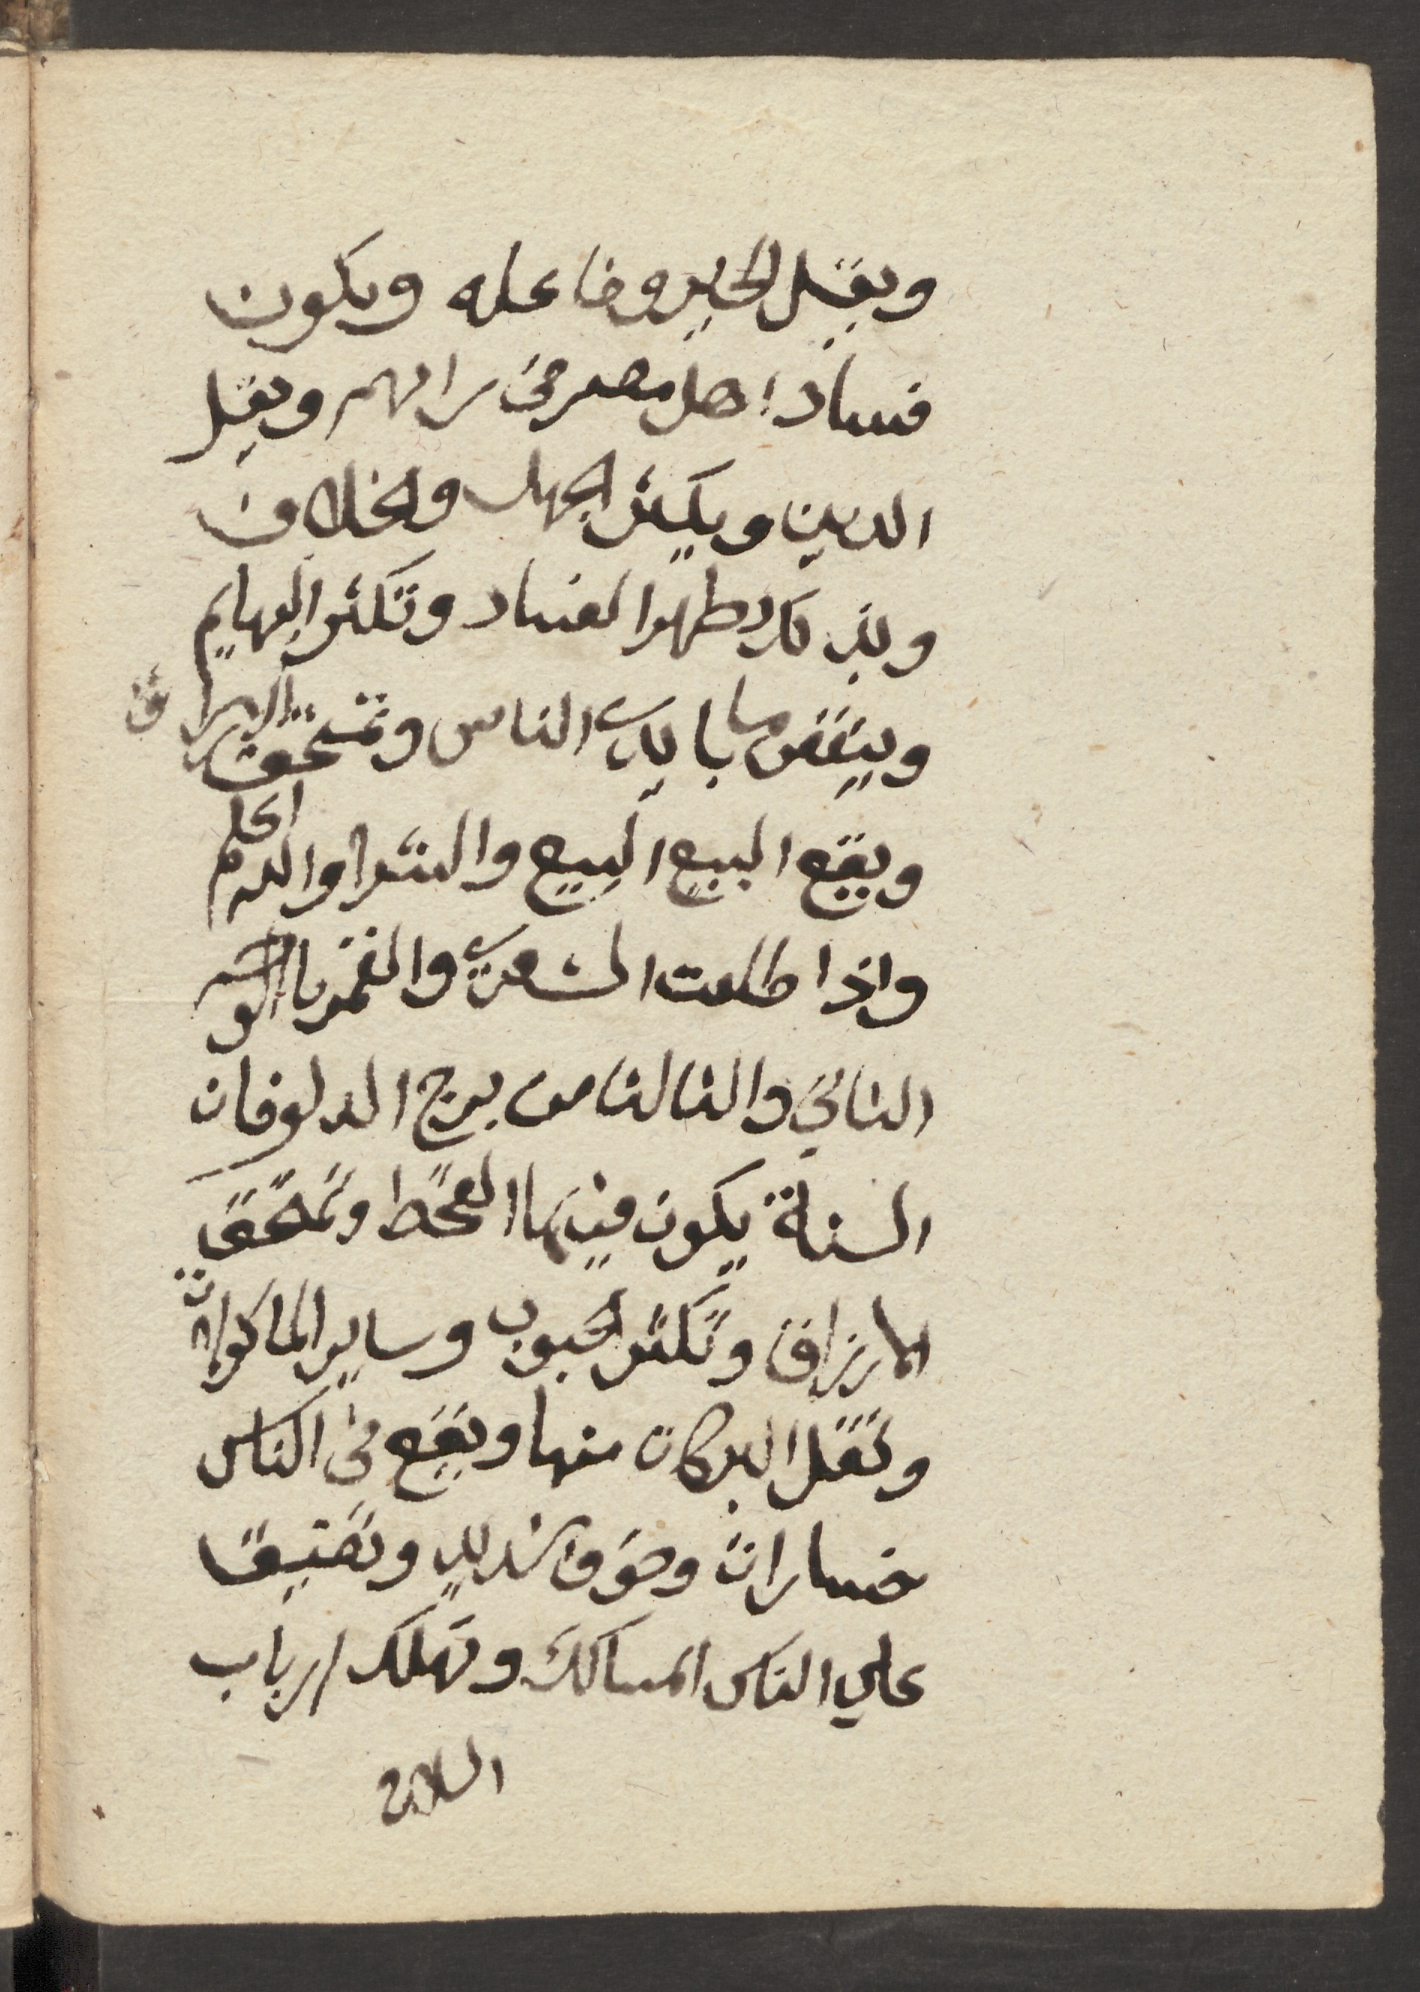 ويقل الخير وفاعله ويكون
فساد اهل مصر في رايهم ويقل
الدين ويكثر الجهل والخلاف
وبذلك يظهر الفساد وتكثر البهايم
وينقص ما بايدي الناس وتمتحق الارزاق
ويقع البيع البيع والشرا والله اعلم
واذا طلعت الشعري والقمر بالوجه
الثاني والثالث من برج الدلو فان
السنة يكون فيها القحط وتمحق
الارزاق وتكثر الحبوب وساير الماكولات
وتقل البركات منها ويقع في الناس
خسارات وخوف شديد وتضيق
علي الناس المسالك وتهلك ارباب